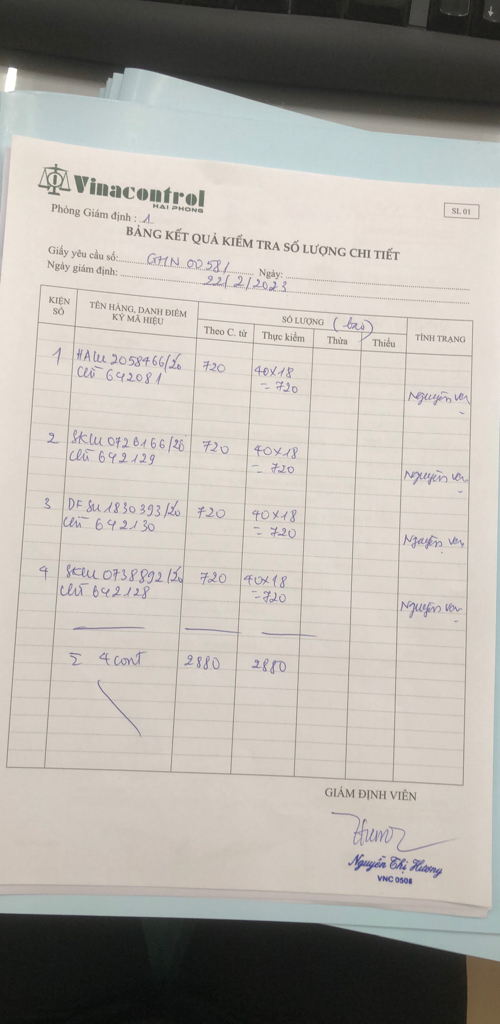 Vinacontrol
HAI PHONG
SL 01
Phòng Giám định : 1
BẢNG KẾT QUẢ KIỂM TRA SỐ LƯỢNG CHI TIẾT
Giấy yêu cầu số: GHN 00581 Ngày:
Ngày giám định: 22/2/2023
KIỆN SỐ TÊN HÀNG, DANH ĐIỂM KÝ MÃ HIỆU SỐ LƯỢNG (bao) TÌNH TRẠNG
Theo C. từ Thực kiểm Thừa Thiếu
1 HALU 2058466/20 720 40x18
chì 642081 = 720 Nguyên vẹn
2 SKLU 0726166/20 720 40x18
chì 642129 = 720 Nguyên vẹn
3 DFSU 1830393/20 720 40x18
chì 642130 = 720 Nguyên vẹn
4 SKLU 0738892/20 720 40x18
chì 642128 = 720 Nguyên vẹn
Σ 4 cont 2880 2880
GIÁM ĐỊNH VIÊN
Nguyễn Thị Hương
VNC 0508